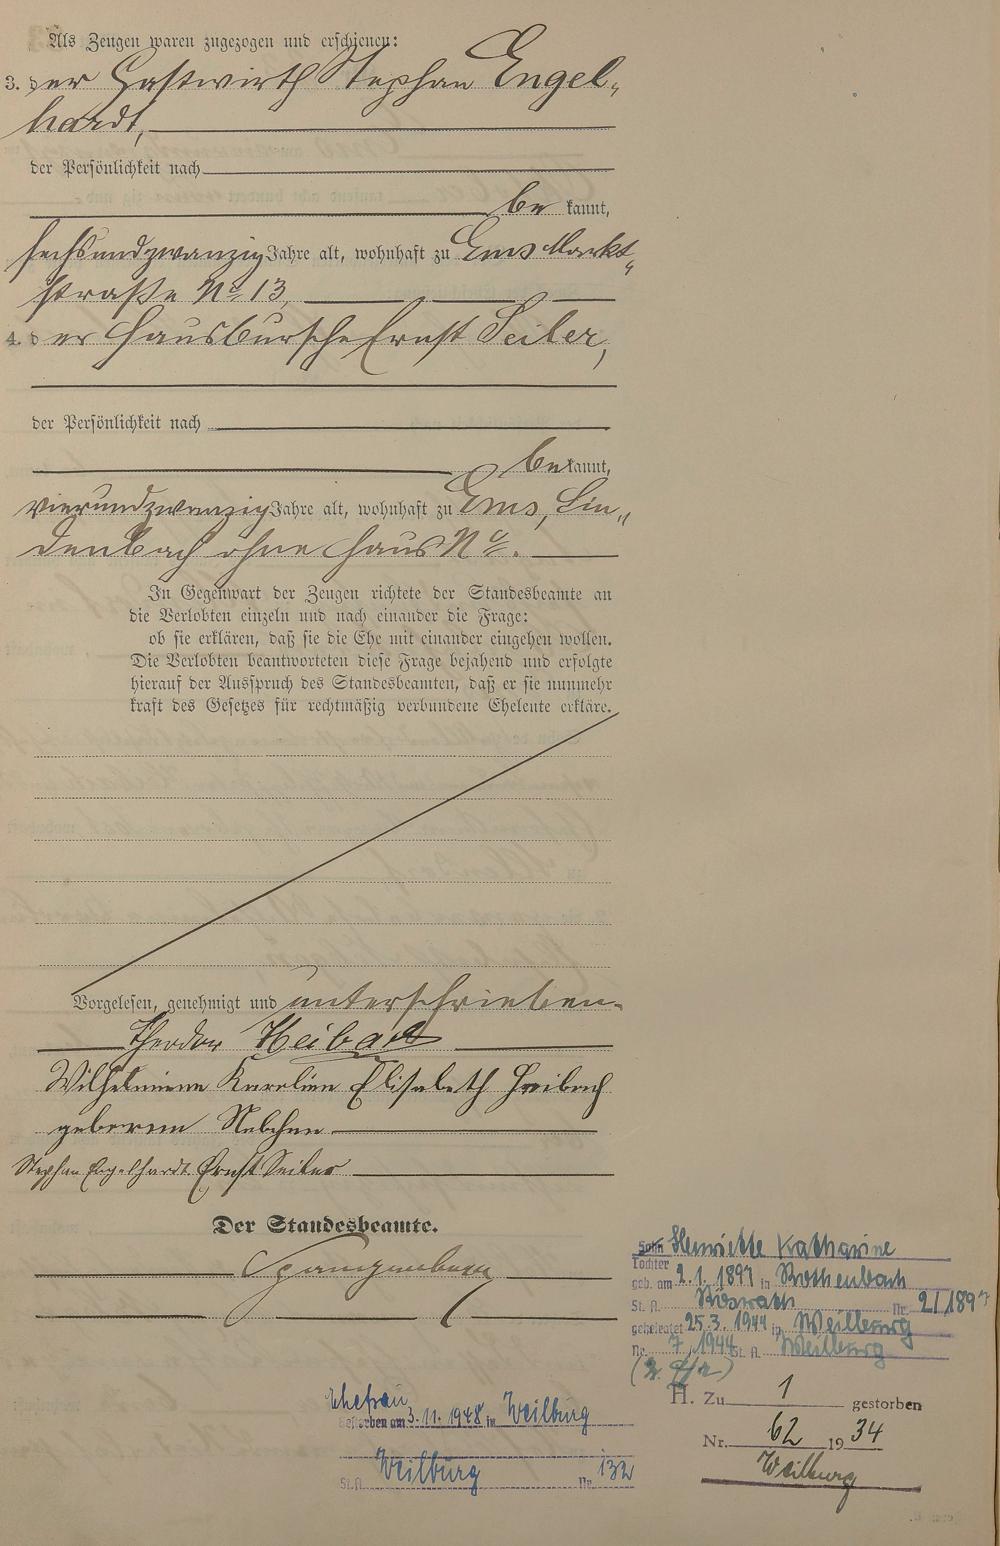 Als Zeugen waren zugezogen und erschienen:
3. der Gastwirth Stephan Engel-
hardt,
der Persönlichkeit nach
be kannt,
sechsundzwanzig Jahre alt, wohnhaft zu Ems Markt-
straße No 13,
4. der Hausbursche Ernst Seiler,
der Persönlichkeit nach
be kannt,
vierundzwanzig Jahre alt, wohnhaft zu Ems, Lin-
denbach ohne Haus No.
In Gegenwart der Zeugen richtete der Standesbeamte an
die Verlobten einzeln und nach einander die Frage:
ob sie erklären, daß sie die Ehe mit einander eingehen wollen.
Die Verlobten beantworteten diese Frage bejahend und erfolgte
hierauf der Ausspruch des Standesbeamten, daß er sie nunmehr
kraft des Gesetzes für rechtmäßig verbundene Eheleute erkläre.
Vorgelesen, genehmigt und unterschrieben
Theodor Heibach
Wilhelmine Karoline Elisabeth Heibach
geborene
Stephan Engelhardt Ernst Seiler
Der Standesbeamte.
Spangenberg
Sohn Henriette Katharine
Tochter
geb. am 2.1.1897 in Rothenbach
St. A. Nr. 2/1897
geheiratet 25.3.1944 in Weilburg
Nr. 7, 1944 St. A. Weilburg
H. Zu 1 gestorben
Nr. 62 1934
Weilburg
Ehefrau
gestorben am 3.11.1948 in Weilburg
St. A. Weilburg Nr. 132